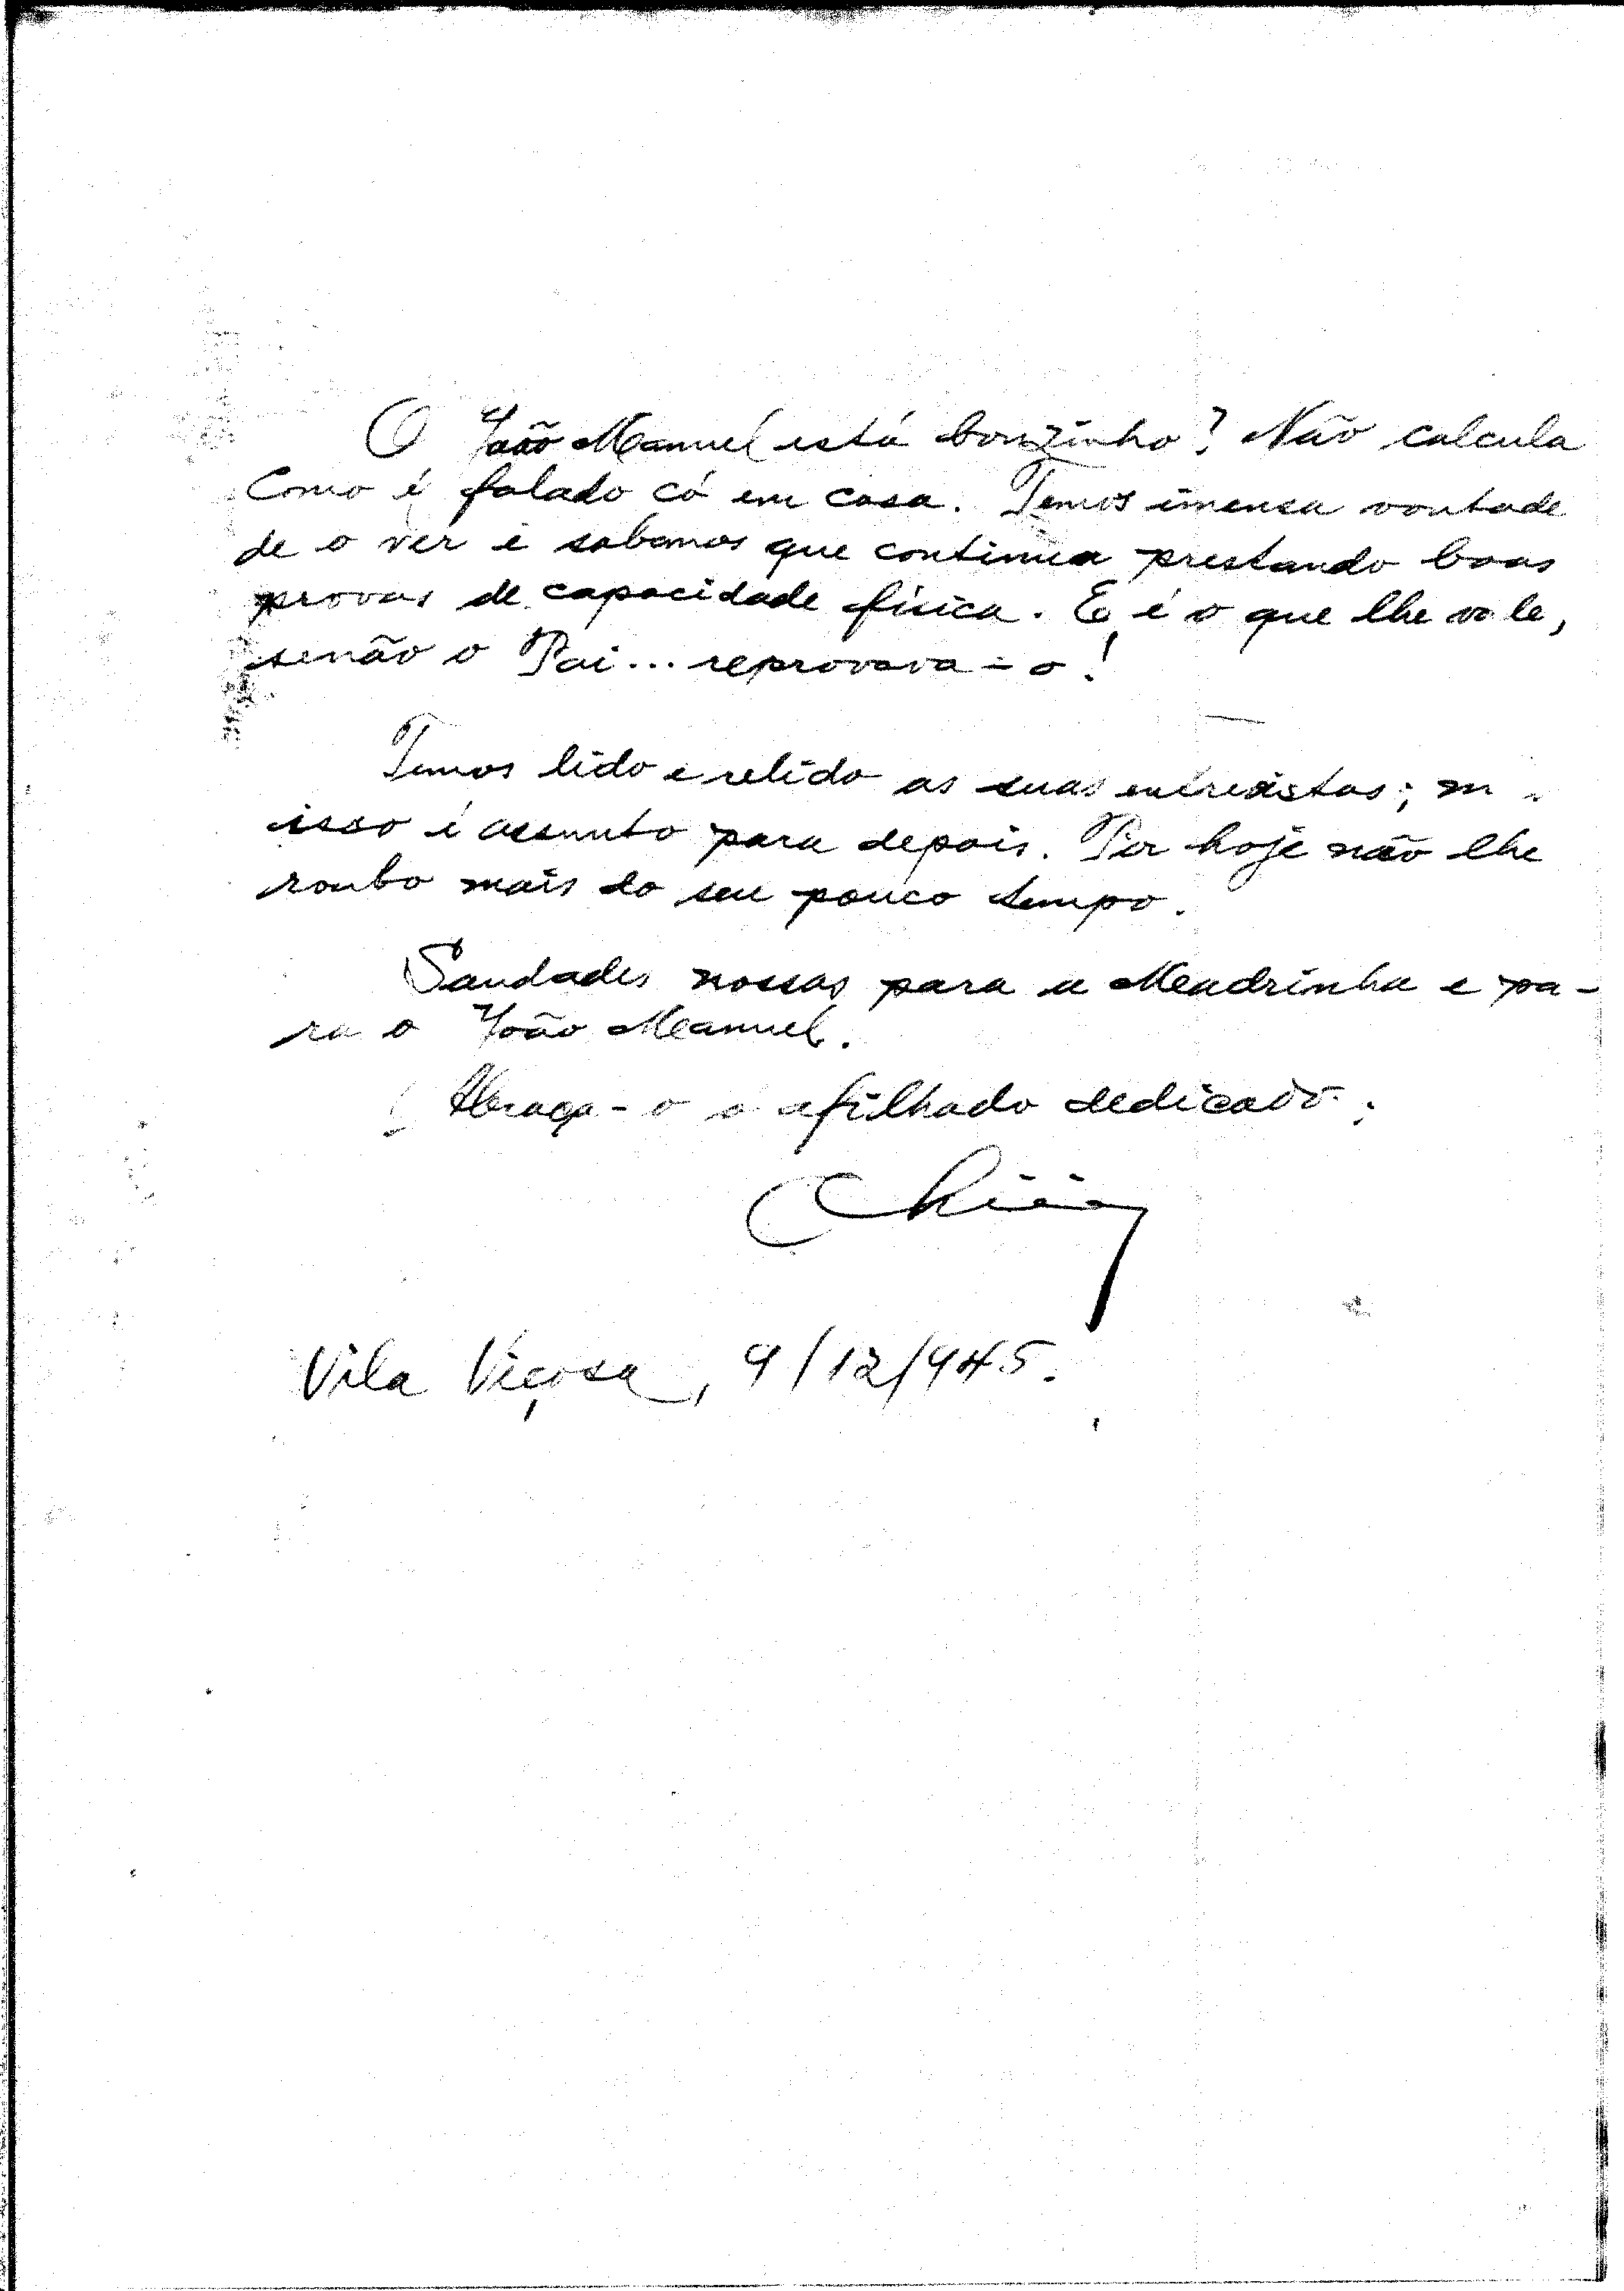 O João Manuel está bonzinho? Não calcula
Como é falado cá em casa. Temos imensa vontade
de o ver e sabemos que continua prestando boas
provas de capacidade física. E é o que lhe vale,
senão o Pai... reprovava-o!
Temos lido e relido as suas entrevistas;
isso é assunto para depois. Por hoje não lhe
roubo mais do seu pouco tempo.
Saudades nossas para a Madrinha e pa-
ra o João Manuel.
Abraça-o o afilhado dedicado
Vila Viçosa, 9/12/945.